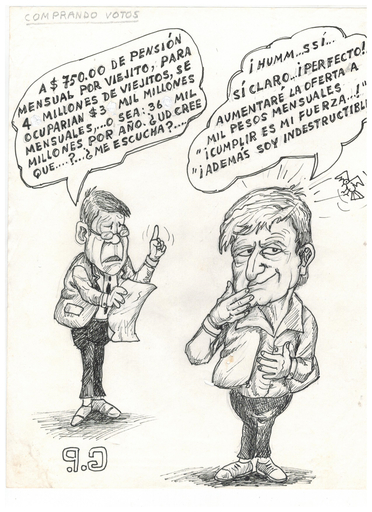 COMPRANDO VOTOS
A $ 750.00 DE PENSIÓN
MENSUAL POR VIEJITO, PARA
4 MILLONES DE VIEJITOS, SE
OCUPARIAN $3 MIL MILLONES
MENSUALES,..O SEA: 36 MIL
MILLONES POR AÑO.¿UD CREE
QUE....?...¿ME ESCUCHA?....
¡HUMM...SSÍ...
SÍ CLARO...¡PERFECTO!
AUMENTARÉ LA OFERTA A
MIL PESOS MENSUALES
"¡CUMPLIR ES MI FUERZA...!"
"¡ADEMÁS SOY INDESTRUCTIBL
P.G